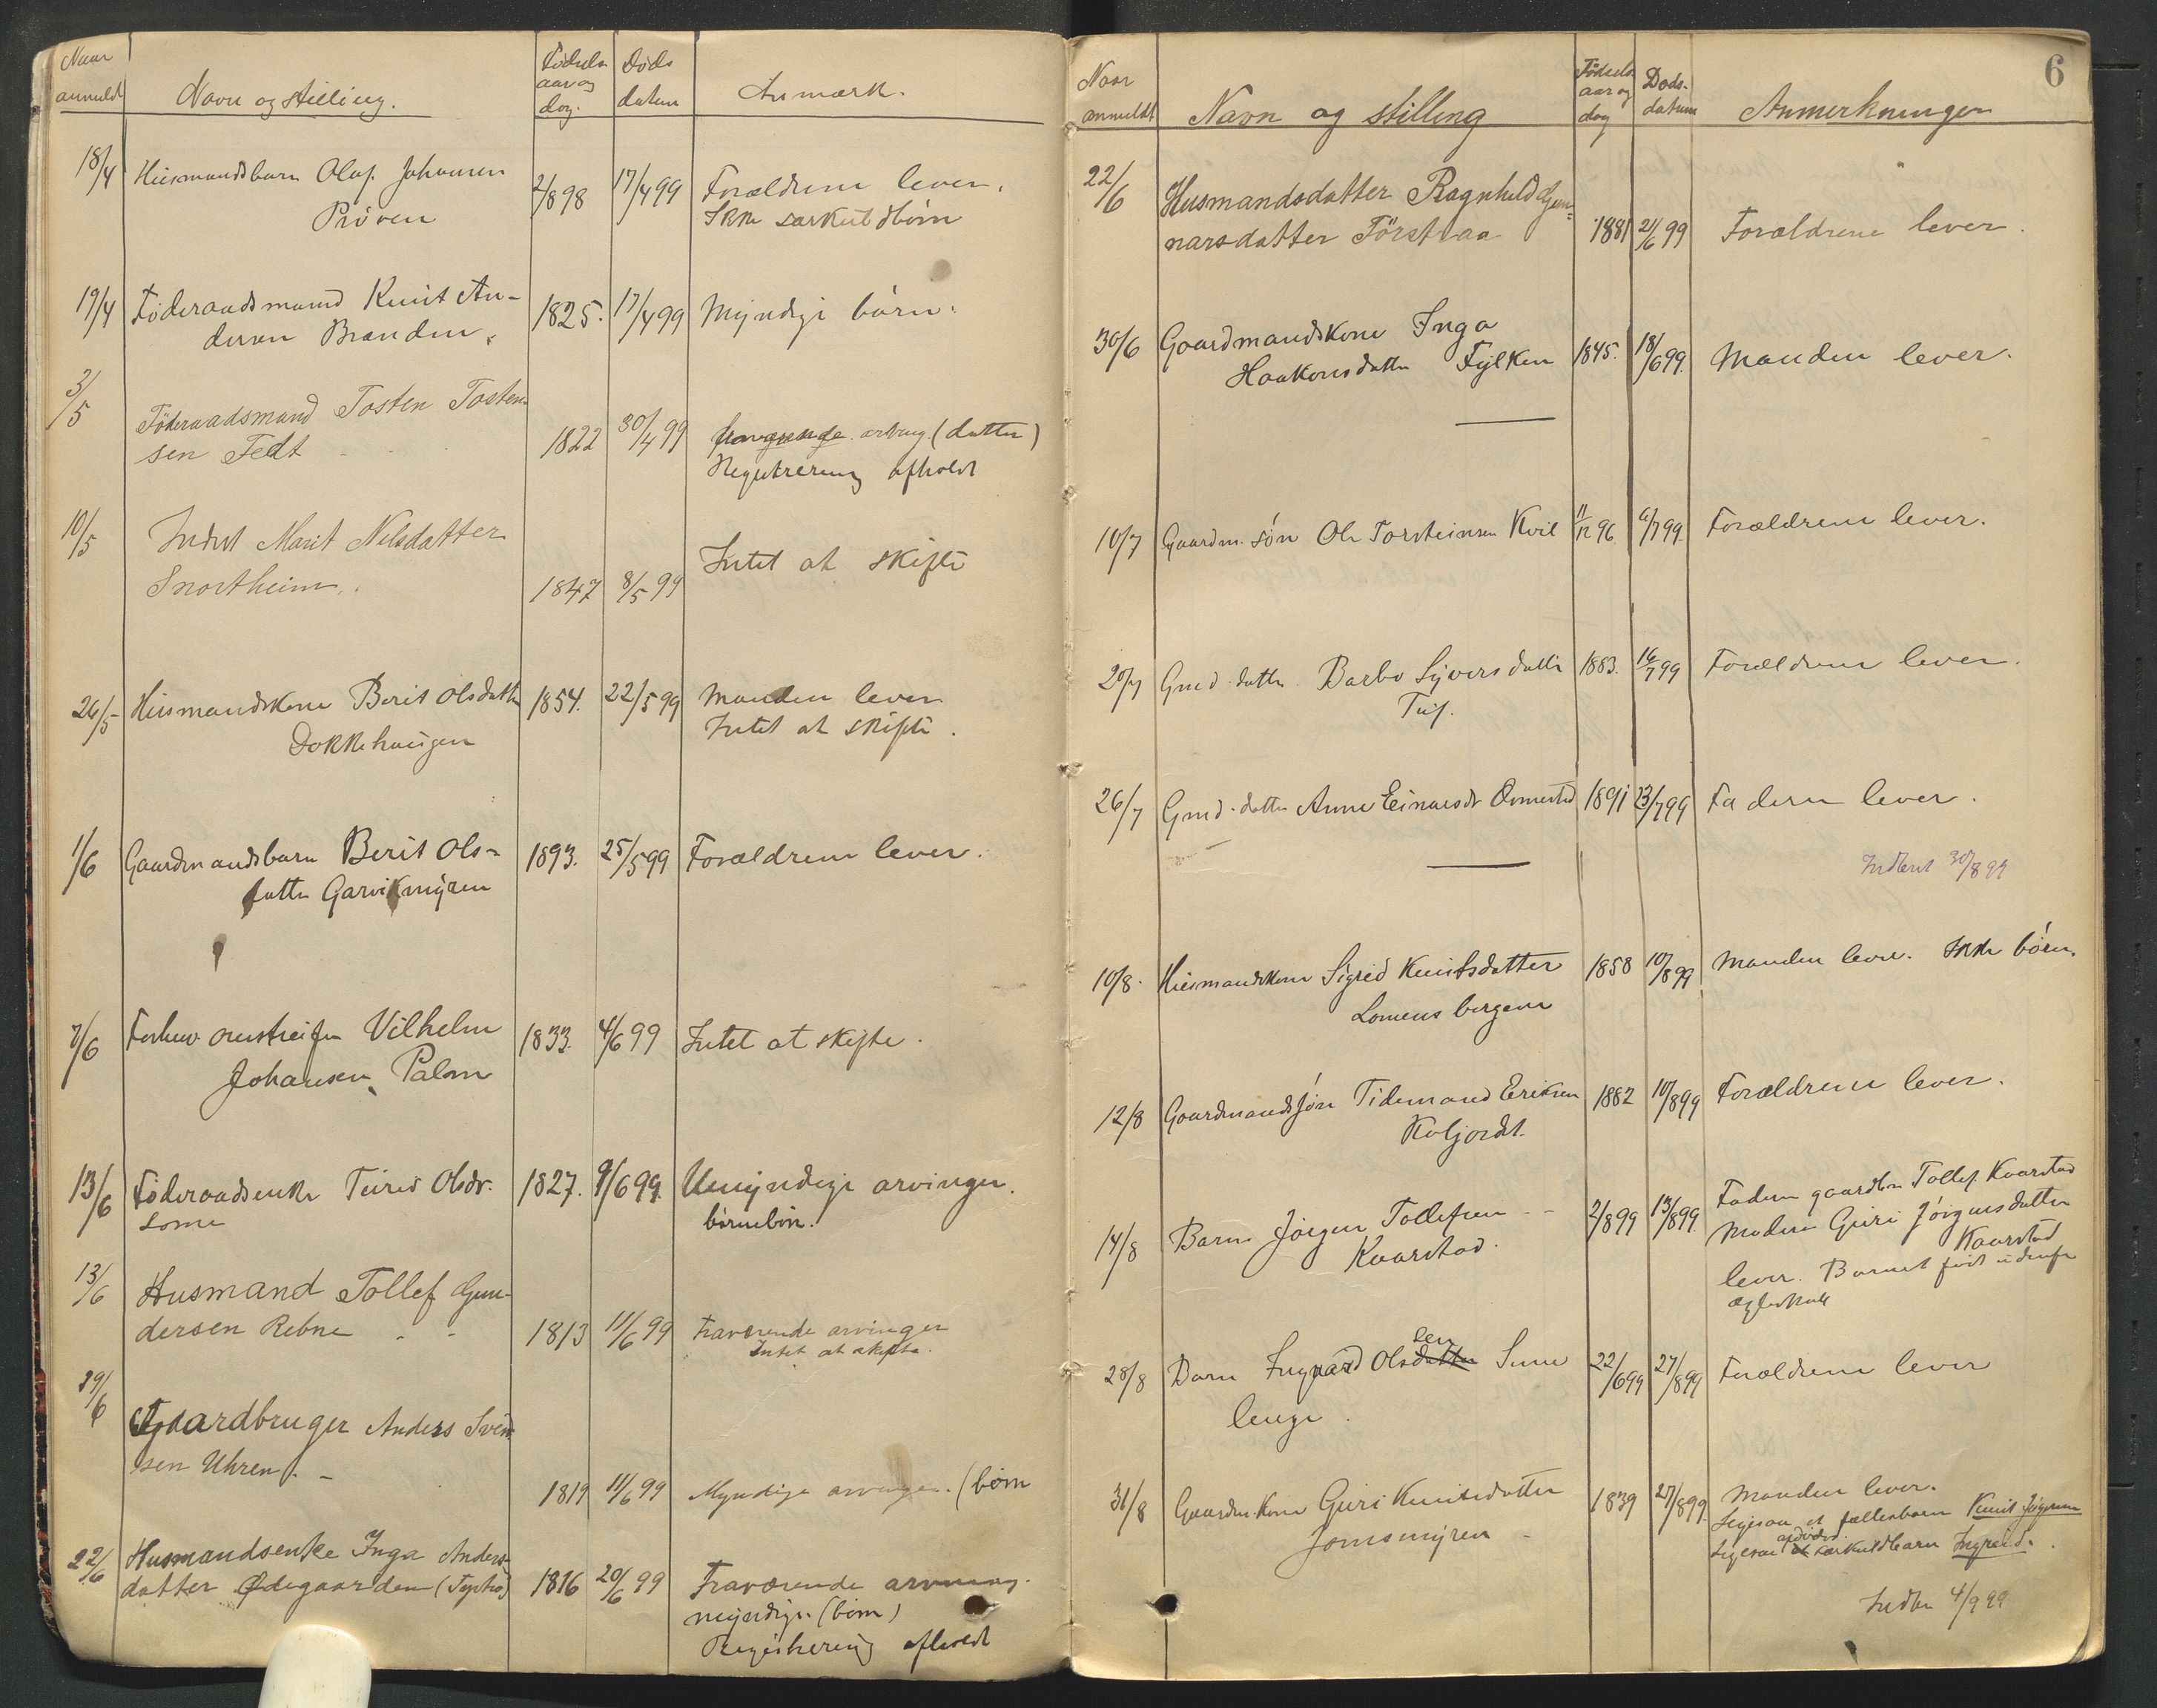 Naar
anmeldt
Navn og stilling.
Fødsels
aar og
dag.
Døds
datum
Anmærk.
18/4 Husmandsbarn Olaf Johansen
Prøven
2/8 98 17/4 99 Forældrene lever.
Ikke særkuldbørn
19/4 Föderaadsmand Knut An-
dersen Branden. 1825. 17/4 99 Myndige børn.
3/5 Föderaadsmand Tosten Tosten-
sen Fedt 1822 30/4 99 fraværende arving (datter)
Registrering afholdt
10/5 Inderst Marit Nilsdatter
Snortheim. 1847 8/5 99 Intet at skifte
26/5 Husmandskone Berit Olsdatter
Dokkehaugen 1854. 22/5 99 Manden lever
Intet at skifte.
1/6 Gaardmandsbarn Berit Ols-
datter Garvikmyren 1893. 25/5 99 Forældrene lever.
7/6 Vilhelm
Johansen Palm 1833. 4/6 99 Intet at skifte.
13/6 Föderaadsenke Turid Olsdr.
Lome 1827. 9/6 99. Umyndige arvinger.
børnebørn.
13/6 Husmand Tollef Gun-
dersen Rebne 1813 11/6 99 Fraværende arvinger
Intet at skifte.
19/6 Gaardbruger Anders Svend-
sen Uhren. 1819 11/6 99 Myndige arvinger. (børn
22/6 Husmandsenke Inga Anders-
datter Ødegaarden 1816 20/6 99 Fraværende arvinger
myndige. (børn)
Registrering afholdt
6
Naar
anmeldt
Navn og stilling
Fødsels
aar og
dag
Døds-
datum
Anmerkninger
22/6 Husmandsdatter Ragnhild Gun-
narsdatter Förstraa 1881 21/6 99 Forældrene lever.
30/6 Gaardmandskone Inga
Haakonsdatter Fylken 1845. 18/6 99. Manden lever.
10/7 Gaardm. søn Ole Torsteinsen Kvil 11/12 96. 6/7 99. Forældrene lever.
20/7 Gmd. datter Barbo Syversdatter
Tuf. 1883. 16/7 99 Forældrene lever.
26/7 Gmd. datter Anne Einarsdr 1891 23/7 99 Faderen lever.
Indberet 30/8 99
10/8. Husmandskone Sigrid Knutsdatter
Lomensbergene 1858 10/8 99 Manden lever. Ikke børn.
12/8 Gaardmandssøn Tidemand Eriksen
Kvljordt. 1882 10/8 99 Forældrene lever.
14/8 Barn Jørgen Tollefsen
Kvarstad. 2/8 99 13/8 99. Faderen gaardbr. Tollef Kvarstad
Moderen Guri Jørgensdatter
Kvarstad
lever. Barnet født udenfor
ægteskab
28/8 Barn Ingvard Olsdatter sen Sune
lenge. 22/6 99 27/8 99 Forældrene lever
31/8 Gaardm. kone Guri Knutsdatter
Jomsmyren 1839 27/8 99. Manden lever.
Ligesaa et fællesbarn Knut Jörgensen
Ligesaa afdödes særkuldbarn Ingrid.
Indber 4/9 99